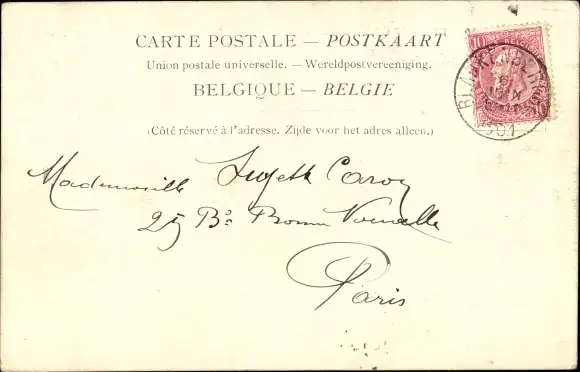 CARTE POSTALE — POSTKAART
Union postale universelle. — Wereldpostvereeniging.
BELGIQUE — BELGIE
(Côté réservé à l'adresse. Zijde voor het adres alleen.)
10
Mademoiselle
25 Bd Bonne Nouvelle
Paris